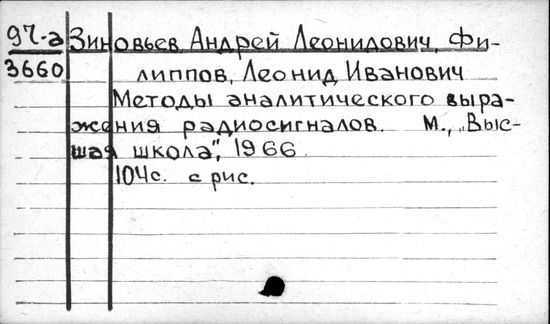 97-а Зиновьев Андрей Леонидович, Фи-
3660 липпов, Леонид Иванович
Методы аналитического выра-
жения радиосигналов. М., „Выс-
шая школа", 1966.
104с. с рис.